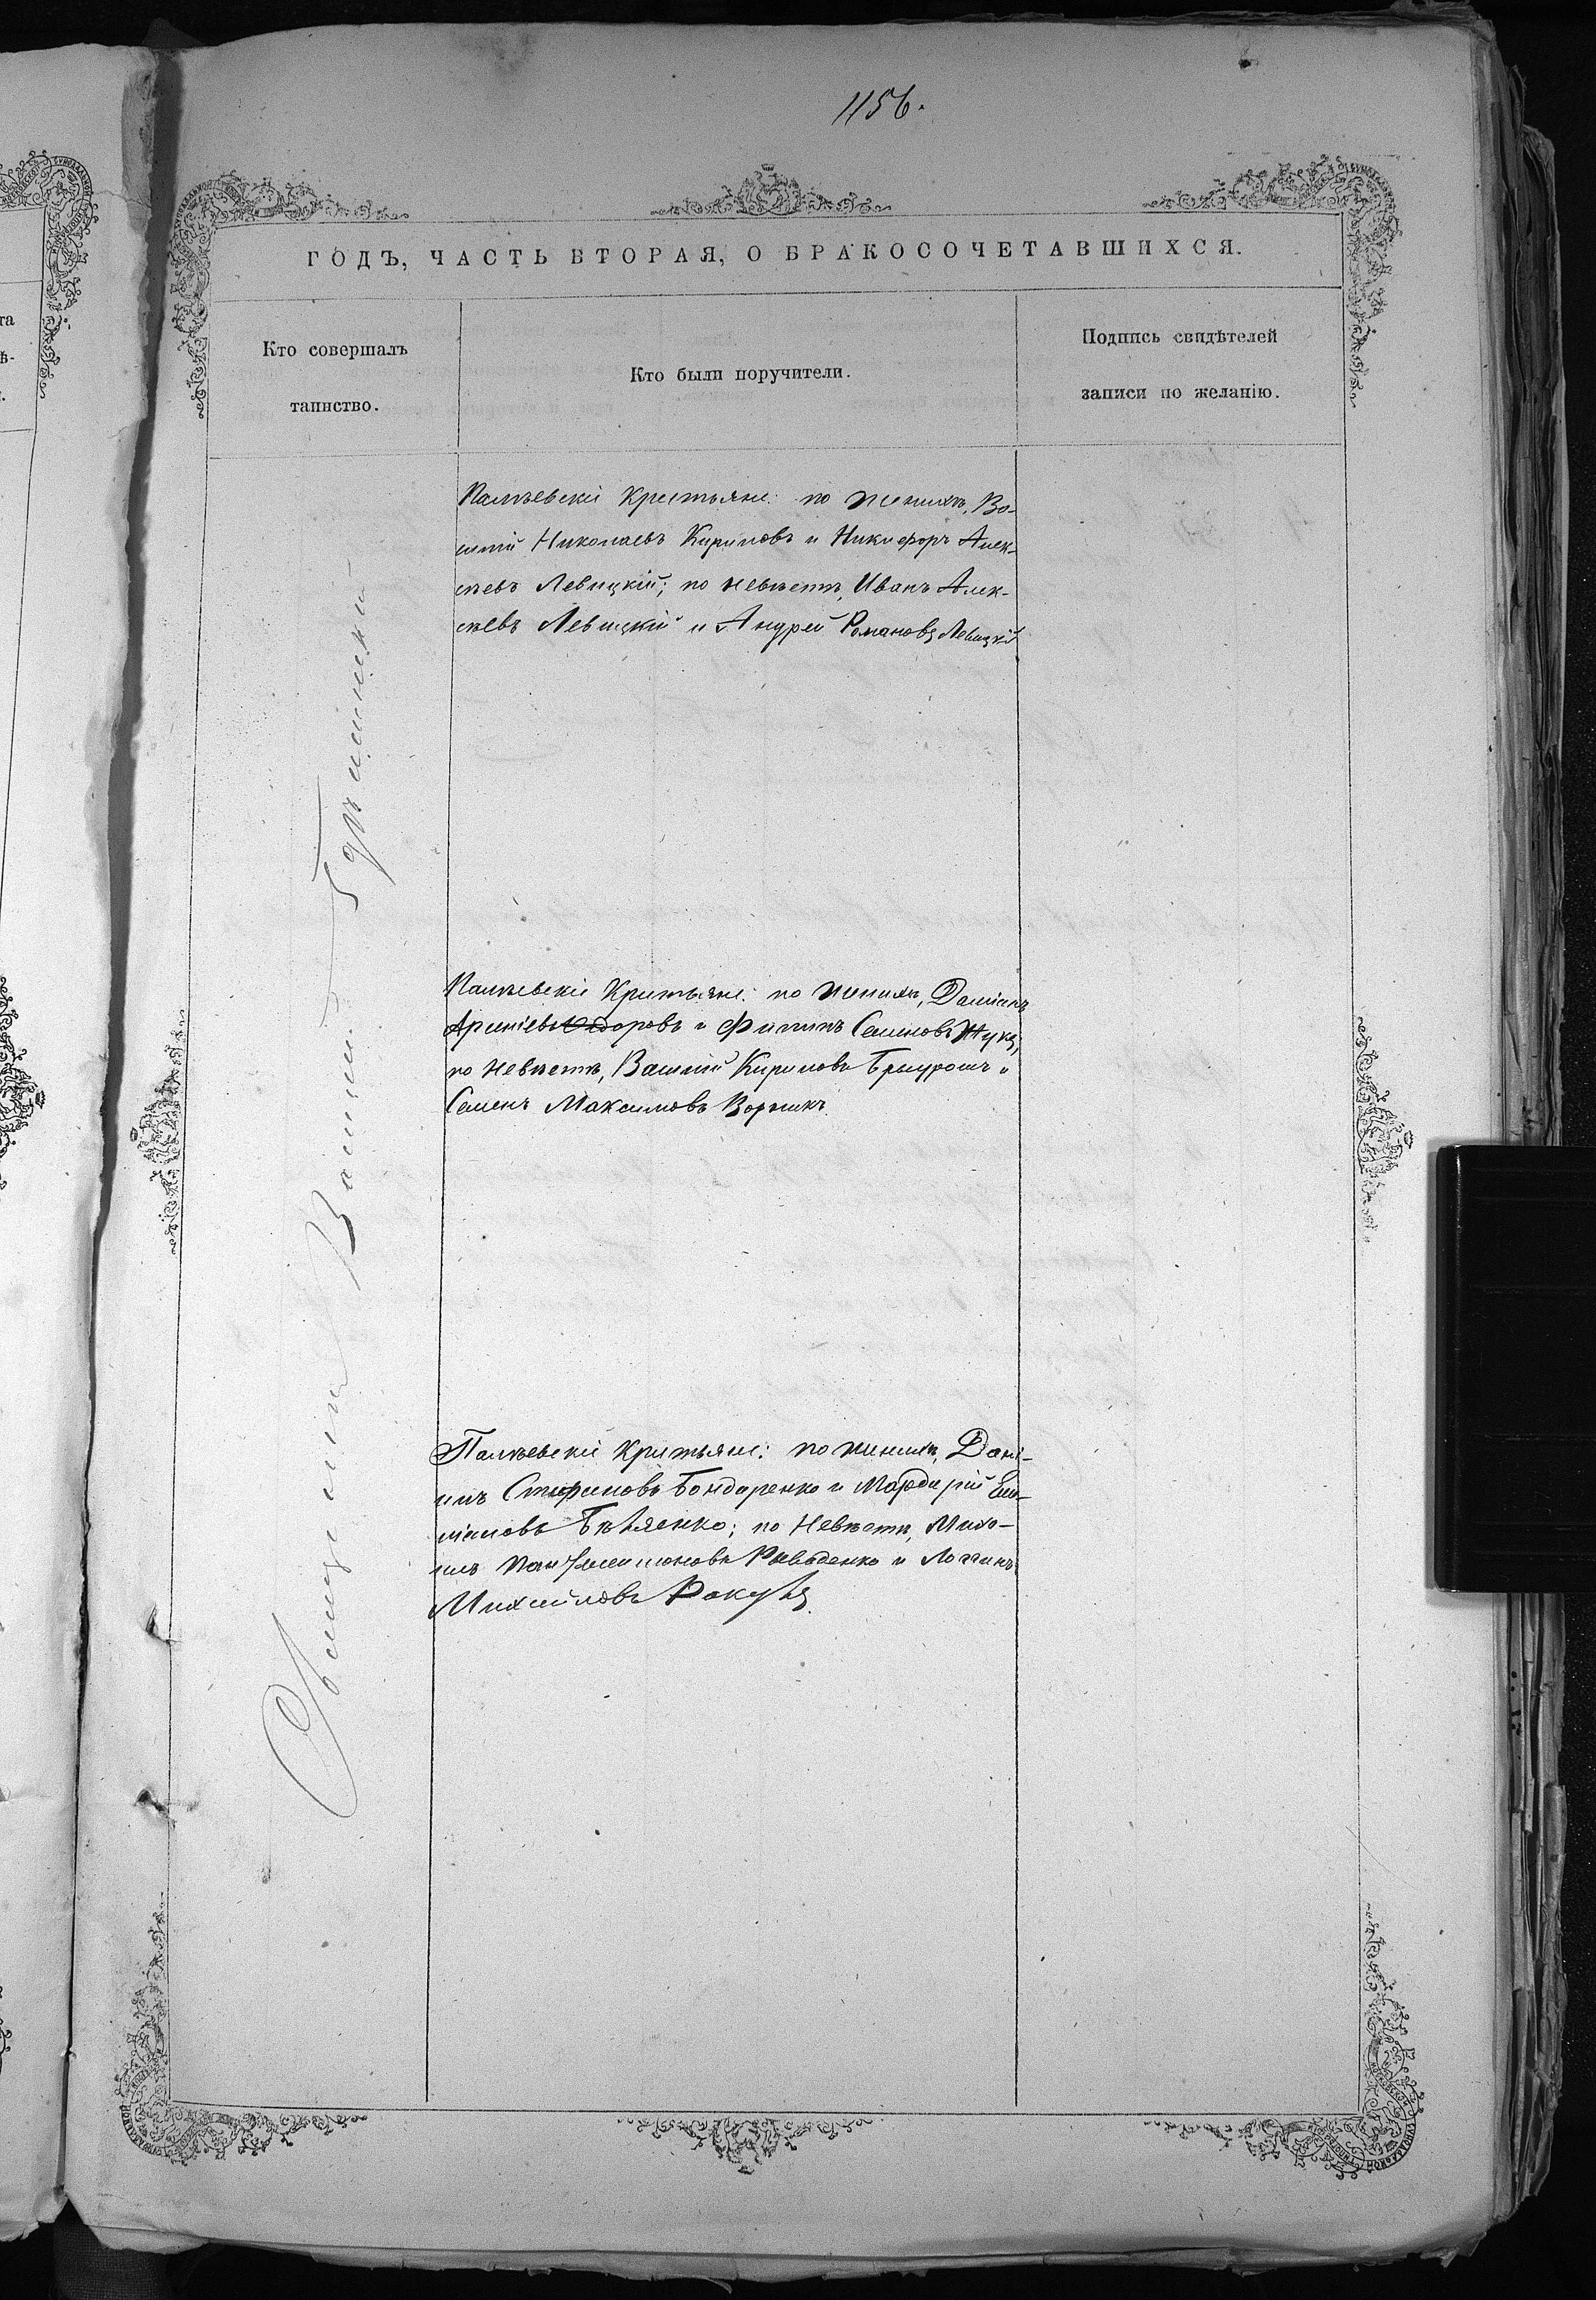 1156.
ГОДЪ, ЧАСТЬ ВТОРАЯ, О БРАКОСОЧЕТАВШИХСЯ.
Кто совершалъ
таинство.
Кто были поручители.
Подпись свидѣтелей
записи по желанію.
Священникъ Василій
Палѣевскіе Крестьяне: по женихѣ, Ва-
силій Николаевъ Кириловъ и Никифоръ Алек-
сѣевъ Левицкій; по невѣстѣ, Иванъ Алек-
сѣевъ Левицкій и Андрей Романовъ Левицкій
Палѣевскіе Крестьяне: по женихѣ, Даміанъ
и Филипъ Семеновъ Жукъ;
по невѣстѣ, Василій Кириловъ и
Семенъ Максимовъ
Палѣевскіе Крестьяне: по женихѣ, Дані-
илъ Стефановъ Бондаренко и Мардарій Еми-
ліановъ Бѣляенко; по невѣстѣ, Миха-
илъ и Логгинъ
Михайловъ